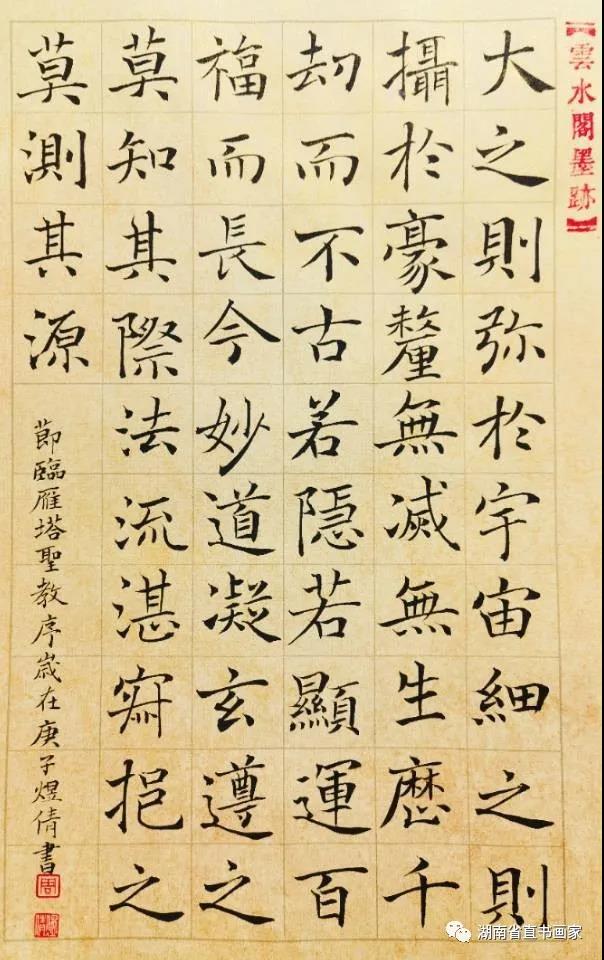 【雲水閣墨跡】
大之則弥於宇宙細之則
攝於豪釐無滅無生歷千
劫而不古若隱若顯運百
福而長今妙道凝玄遵之
莫知其際法流湛寂挹之
莫測其源
節臨雁塔聖教序歲在庚子煜倩書
周
湖南省直书画家